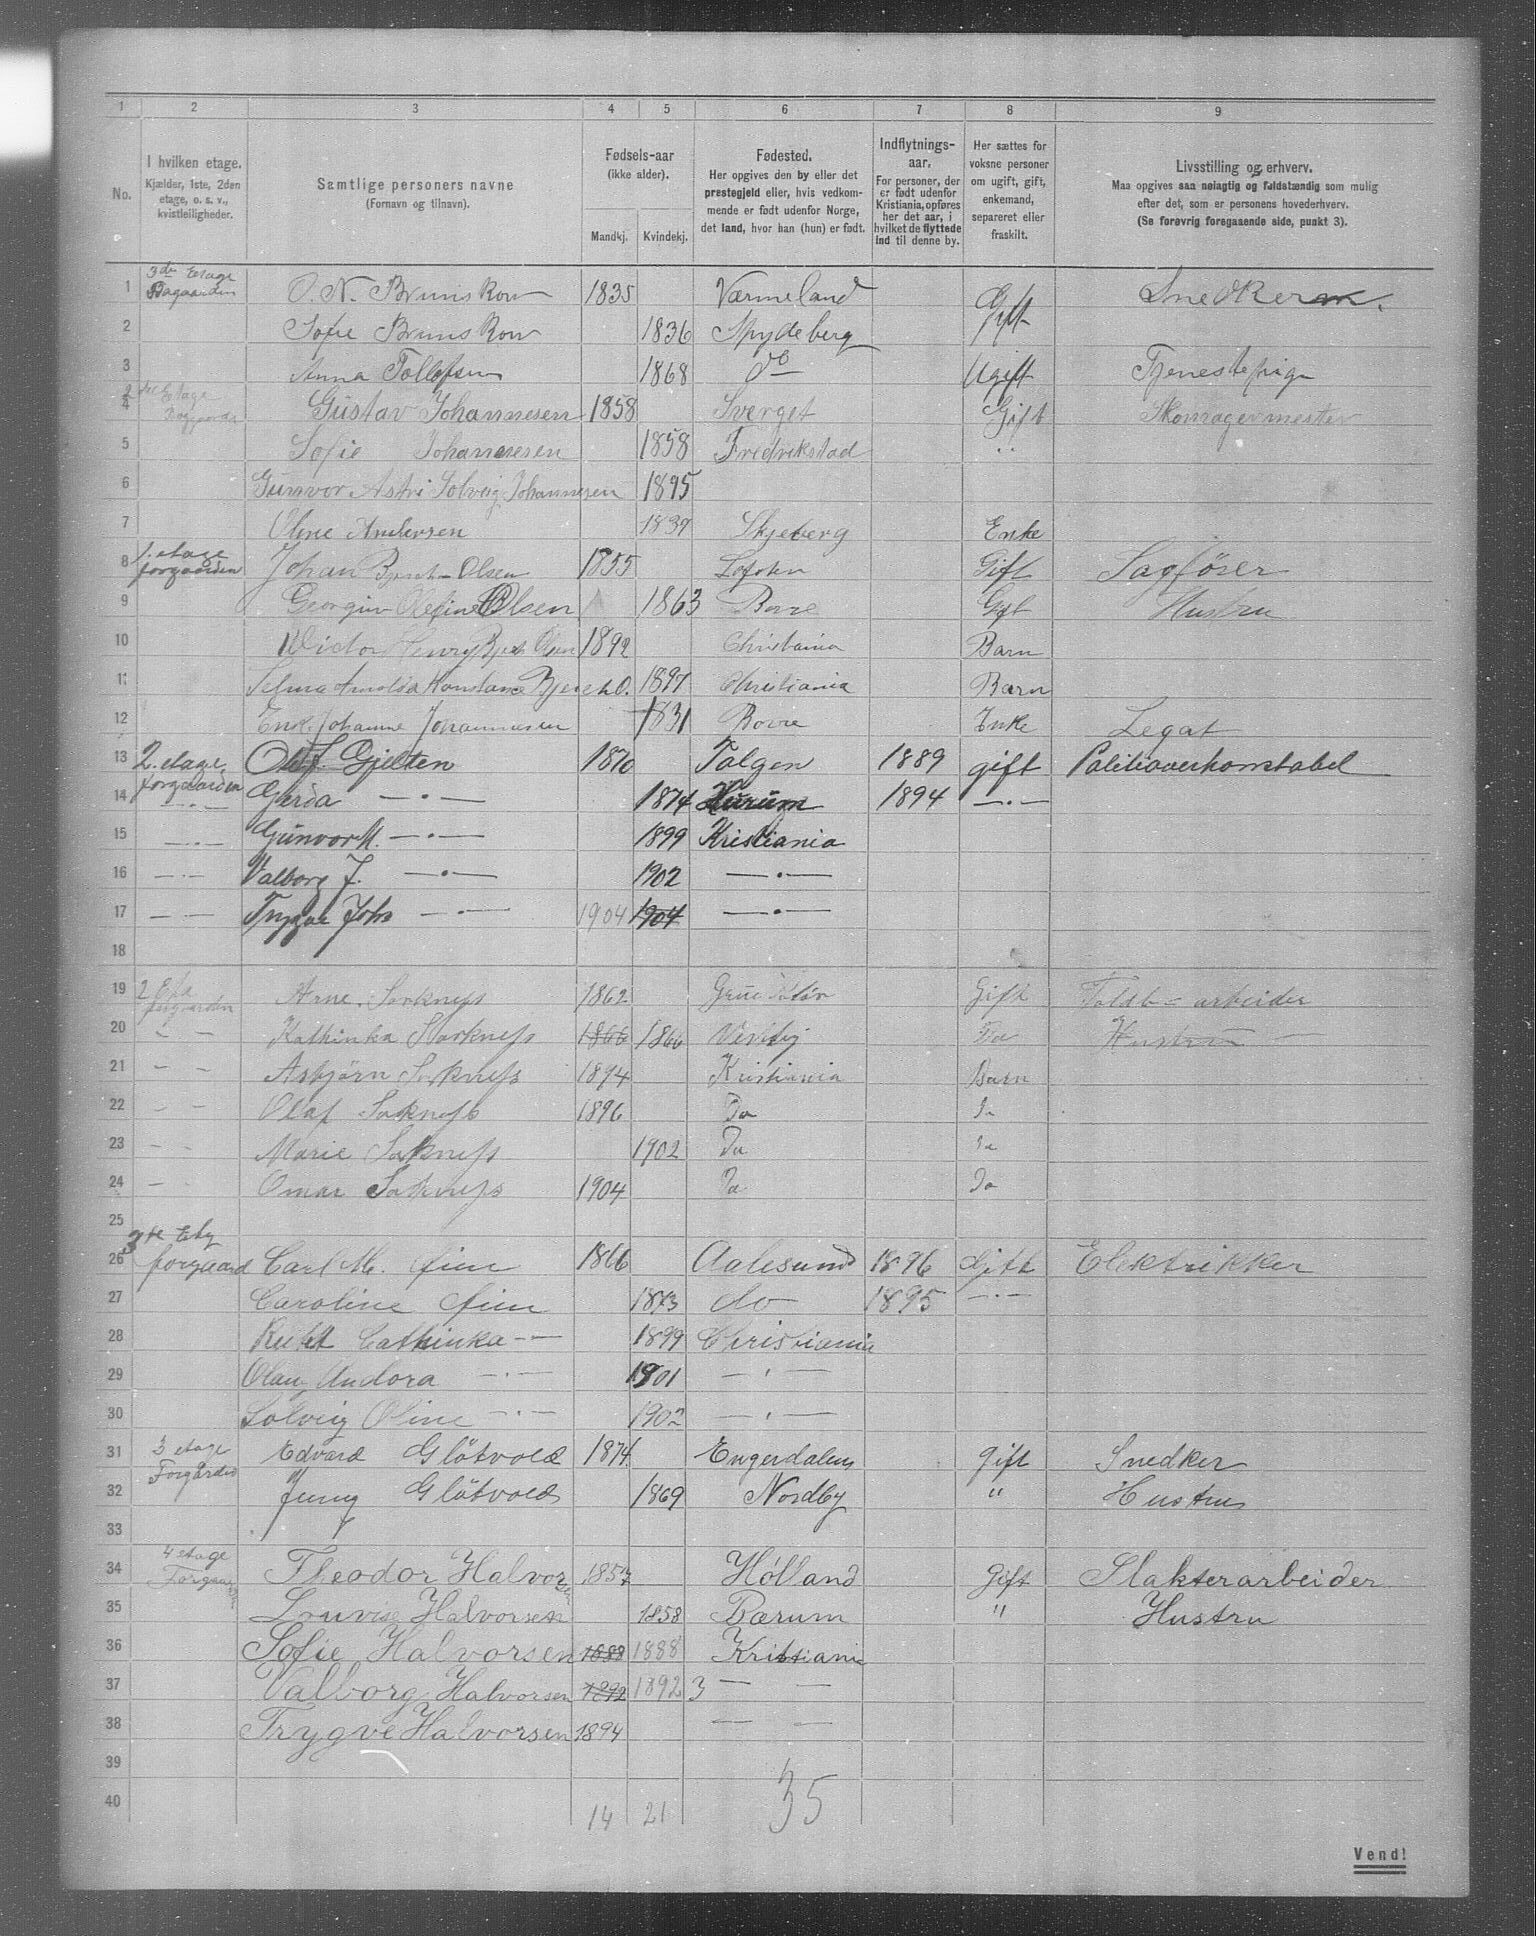 1 2 3 4 5 6 7 8 9
No.
I hvilken etage.
Kjælder, 1ste, 2den etage, o. s. v., kvistleiligheder.
Samtlige personers navne
(Fornavn og tilnavn).
Fødsels-aar
(ikke alder).
Mandkj. Kvindekj.
Fødested.
Her opgives den by eller det
prestegjeld eller, hvis vedkom-
mende er født udenfor Norge,
det land, hvor han (hun) er født.
Indflytnings-
aar.
For personer, der
er født udenfor
Kristiania, opføres
her det aar, i
hvilket de flyttede
ind til denne by.
Her sættes for
voksne personer
om ugift, gift,
enkemand,
separeret eller
fraskilt.
Livsstilling og erhverv.
Maa opgives saa nøiagtig og fuldstændig som mulig
efter det, som er personens hovederhverv.
(Se forøvrig foregaaende side, punkt 3).
1 3de Etage Bagaarden O. N. Brunskow 1835 Værmeland Gift Snedkerm.
2 Sofie Brunskow 1836 Spydeberg Gift
3 Anna Tollefsen 1868 do Ugift Tjenestepige
4 2den Etage Baggaarden Gustav Johannesen 1858 Sverget Gift Skomagermester
5 Sofie Johannesen 1858 Fredrikstad "
6 Gunvor Astri Solveig Johannesen 1895
7 Oline Andersen 1839 Skjeberg Enke
8 1. etage forgaarden Johan Olsen 1855 Gift Sagfører
9 Olefine Olsen 1863 Borre Gift Hustru
10 Victor Henry Olsen 1892 Christiania Barn
11 Selma O. 1897 Christiania Barn
12 Enke Johanne Johannesen 1831 Borre Enke Legat
13 2. etage forgaarden Olaf Gjelten 1870 Tolgen 1889 gift Politioverkonstabel
14 — " — Gerda — " — 1874 Hurum 1894 — " —
15 — " — Gunvor M. — " — 1899 Kristiania
16 — " — Valborg J. — " — 1902 — " —
17 — — Trygve Johs — " — 1904 1904 — " —
18
19 2 Eta forgaarden Arne Sorkness 1862 Grue Gift Toldb= arbeider
20 " " Kathinka Sorkness 1866 1866 Do Hustru
21 " " Asbjørn Sorkness 1894 Kristiania Barn
22 " " Olaf Sorkness 1896 Do Do
23 " " Marie Sorkness 1902 Do Do
24 " " Omar Sorkness 1904 Do Do
25
26 3te Etg forgaard Carl M. 1866 Aalesund 1896 Gift Elektrikker
27 Caroline 1873 do 1895 — " —
28 Ruth Cathinka — " — 1899 Christiania
29 Andora — " — 1901 — " —
30 Solveig Oline — " — 1902 — " —
31 3 etage Forgården Edvard Gløtvold 1874 Engerdalen gift Snedker
32 Jenny Gløtvold 1869 Nordby " Hustru
33
34 4 etage Forgaarden Theodor Halvorsen 1857 Hølland Gift Slakterarbeider
35 Louvise Halvorsen 1858 Bærum " Hustru
36 Sofie Halvorsen 1888 1888 Kristiania
37 Valborg Halvorsen 1892 1892 3 — —
38 Trygve Halvorsen 1894 — —
39
40 14 21 35
Vend!